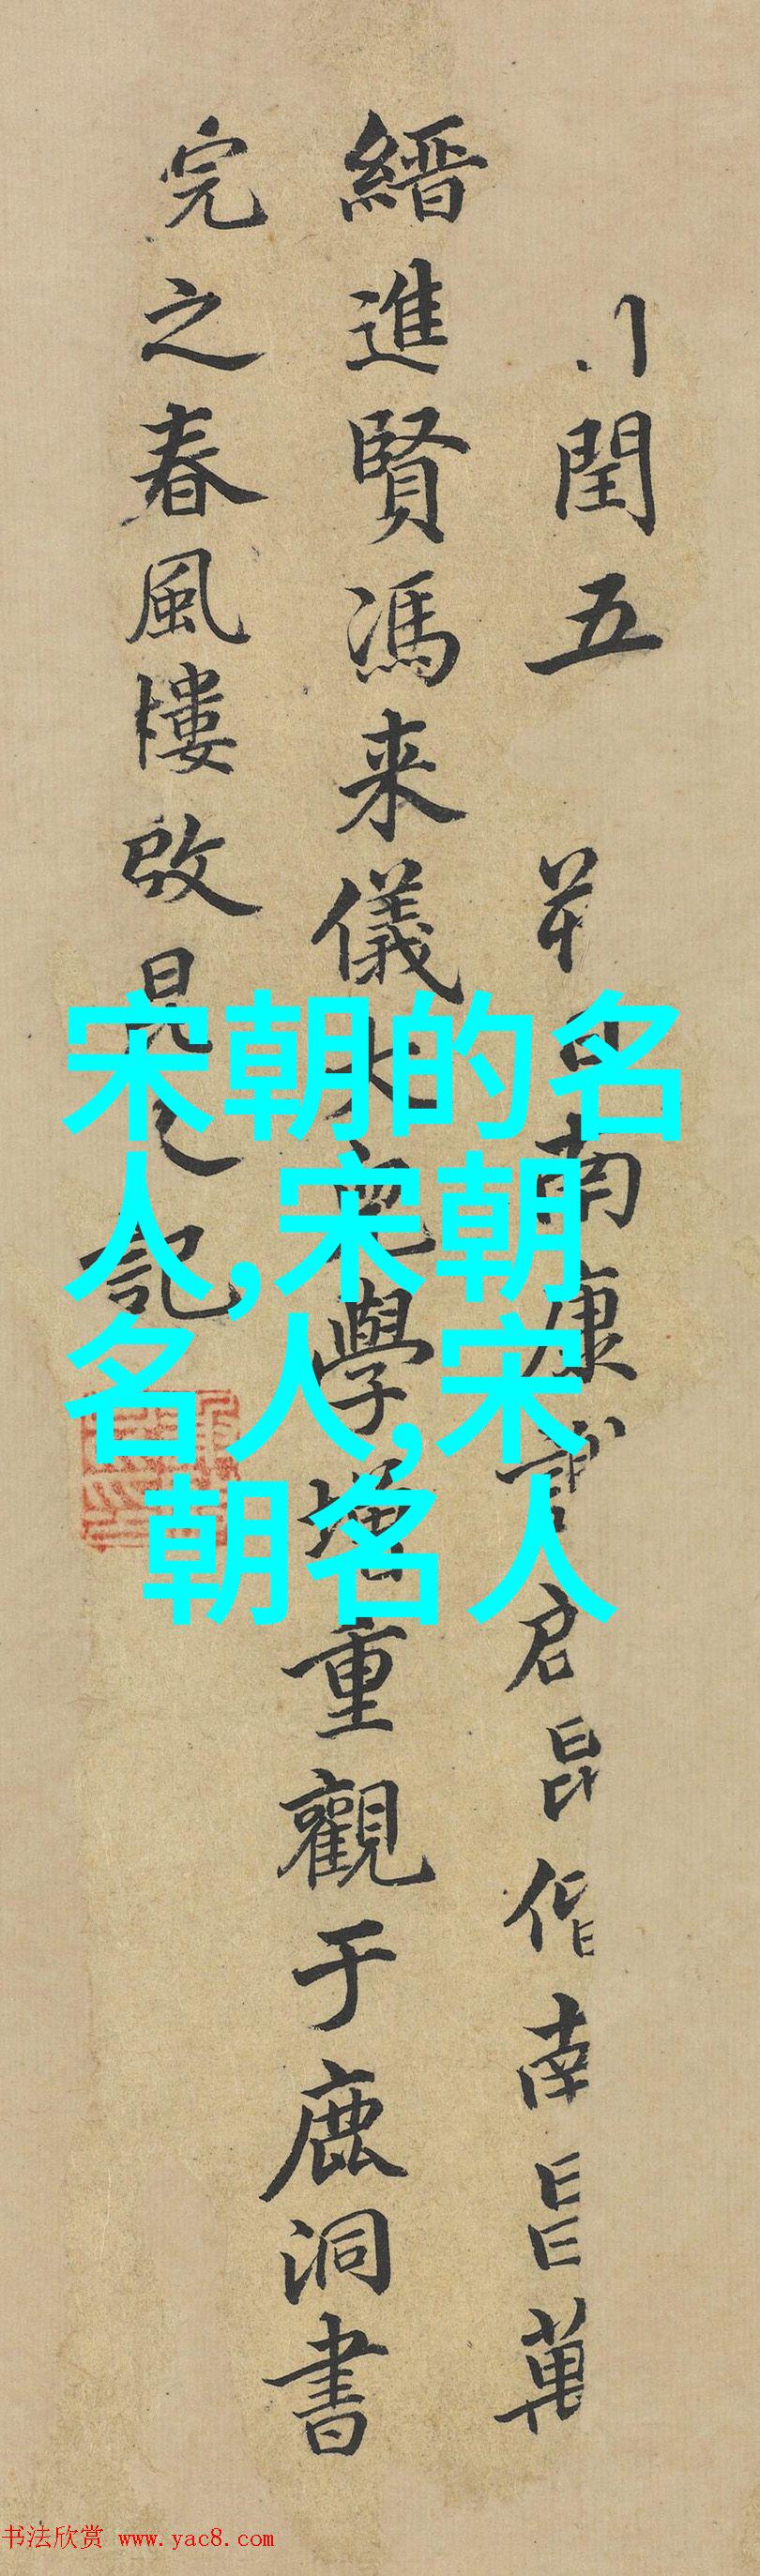 閏五
南康
启昆偕南昌萬
縉進賢馮来儀
學
重觀于鹿洞書
完之春風樓啟晃之記
宋朝的名
人,宋朝
名人,宋
朝名人
书法欣赏 www.yac8.com